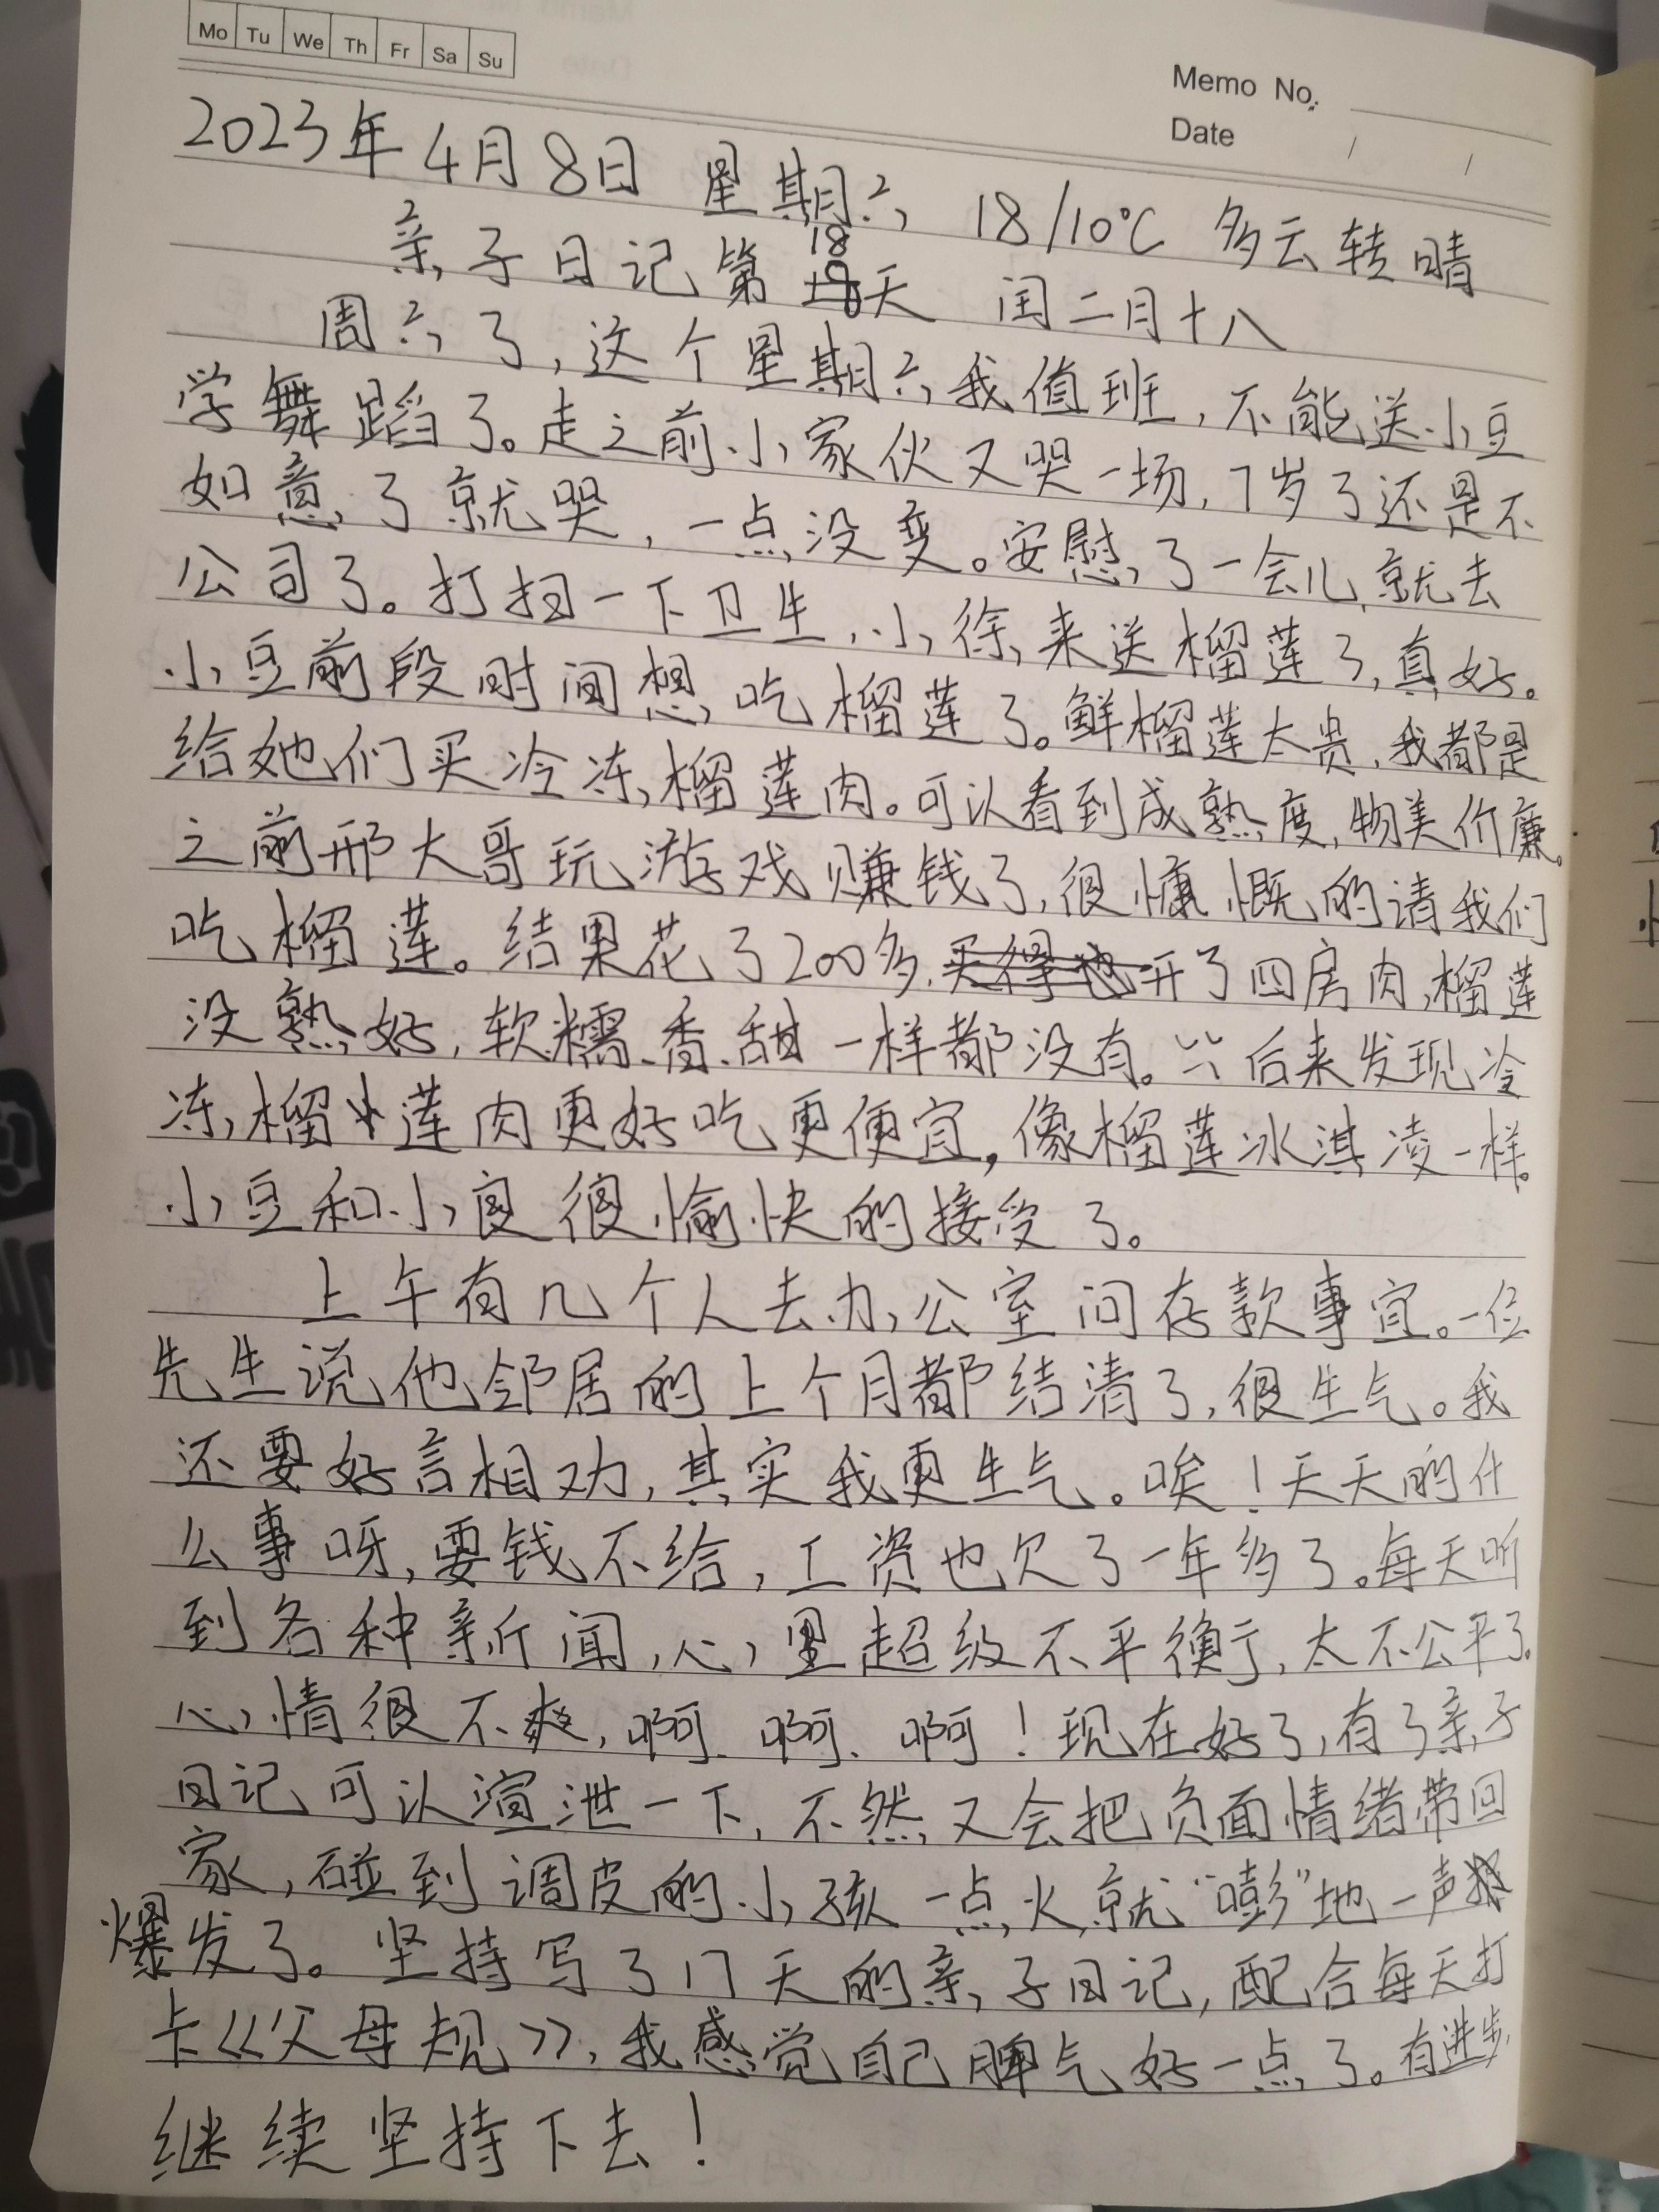 Mo Tu We Th Fr Sa Su
Memo No.
Date / /
2023年4月8日 星期六 18/10℃ 多云转晴
亲子日记第18天 闰二月十八
周六了,这个星期六我值班,不能送小豆
学舞蹈了。走之前小家伙又哭一场,7岁了还是不
如意了就哭,一点没变。安慰了一会儿就去
公司了。打扫一下卫生,小徐来送榴莲了,真好。
小豆前段时间想吃榴莲了。鲜榴莲太贵,我都是
给她们买冷冻榴莲肉。可以看到成熟度,物美价廉。
之前邢大哥玩游戏赚钱了,很慷慨的请我们
吃榴莲。结果花了200多,开了四房肉,榴莲
没熟好,软糯、香、甜一样都没有。后来发现冷
冻榴莲肉更好吃更便宜,像榴莲冰淇凌一样。
小豆和小良很愉快的接受了。
上午有几个人去办公室问存款事宜。一位
先生说他邻居的上个月都结清了,很生气。我
还要好言相劝,其实我更生气。唉!天天的什
么事呀,要钱不给,工资也欠了一年多了。每天听
到各种新闻,心里超级不平衡,太不公平了。
心情很不爽,啊、啊、啊!现在好了,有了亲子
日记可以渲泄一下,不然又会把负面情绪带回
家,碰到调皮的小孩一点火就“嘭”地一声
爆发了。坚持写了17天的亲子日记,配合每天打
卡《父母规》,我感觉自己脾气好一点了。有进步,
继续坚持下去!